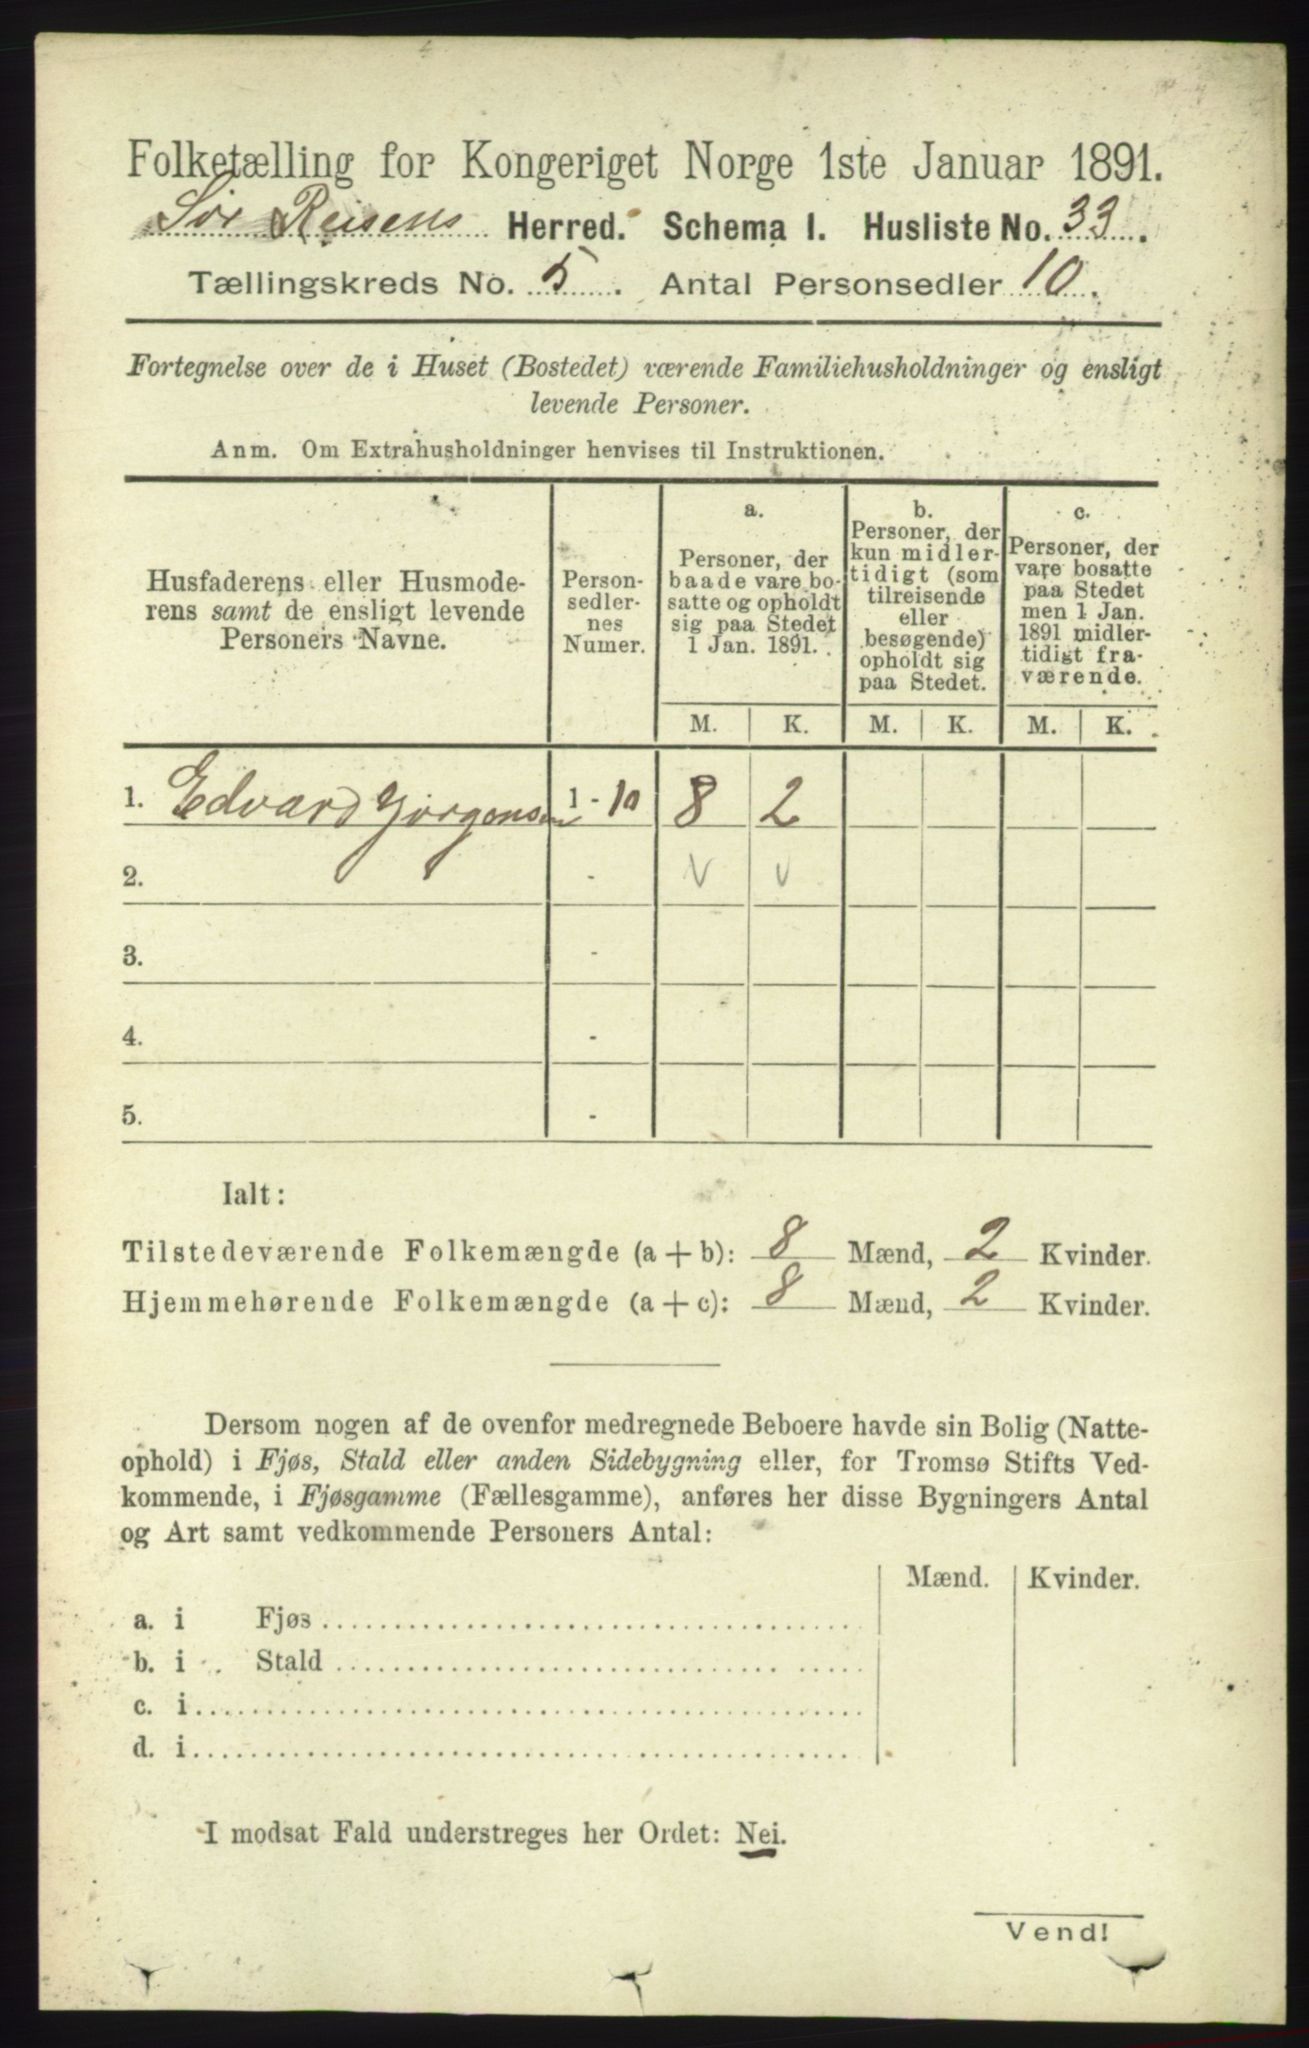 Folketælling for Kongeriget Norge 1ste Januar 1891.
Sör Reisens Herred. Schema I. Husliste No. 33.
Tællingskreds No. 5. Antal Personsedler 10.
Fortegnelse over de i Huset (Bostedet) værende Familiehusholdninger og ensligt
levende Personer.
Anm. Om Extrahusholdninger henvises til Instruktionen.
Husfaderens eller Husmode-
rens samt de ensligt levende
Personers Navne.
Person-
sedler-
nes
Numer.
a.
Personer, der
baade vare bo-
satte og opholdt
sig paa Stedet
1 Jan. 1891.
b.
Personer, der
kun midler-
tidigt (som
tilreisende
eller
besøgende)
opholdt sig
paa Stedet.
c.
Personer, der
vare bosatte
paa Stedet
men 1 Jan.
1891 midler-
tidigt fra-
værende.
M. K. M. K. M. K.
1. Edvard Jörgensen 1 - 10 8 2
2. - v v
3. -
4. -
5. -
Ialt:
Tilstedeværende Folkemængde (a + b): 8 Mænd, 2 Kvinder.
Hjemmehørende Folkemængde (a + c): 8 Mænd, 2 Kvinder.
Dersom nogen af de ovenfor medregnede Beboere havde sin Bolig (Natte-
ophold) i Fjøs, Stald eller anden Sidebygning eller, for Tromsø Stifts Ved-
kommende, i Fjøsgamme (Fællesgamme), anføres her disse Bygningers Antal
og Art samt vedkommende Personers Antal:
Mænd. Kvinder.
a. i Fjøs
b. i Stald
c. i
d. i
I modsat Fald understreges her Ordet: Nei.
Vend!